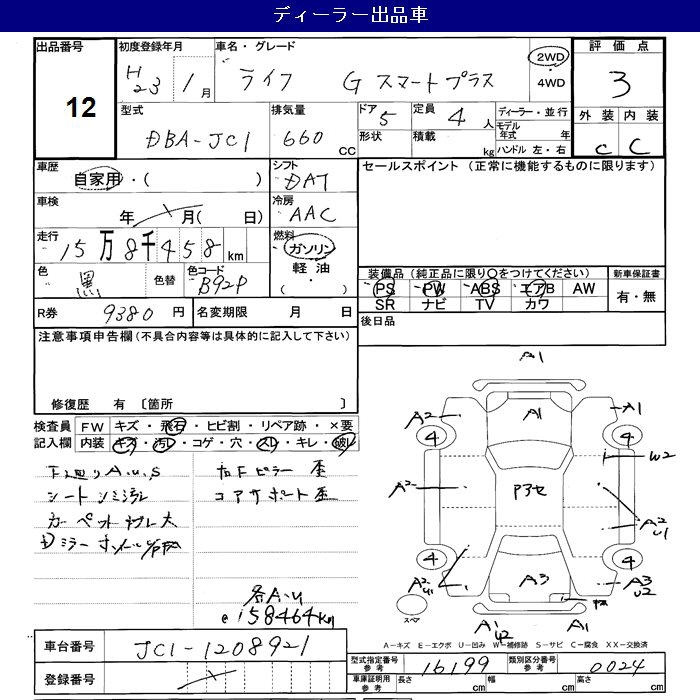 ディーラー出品車
出品番号 12
初度登録年月 H23 1月
車名・グレード ライフ G スマートプラス
2WD・4WD
評価点 3
型式 DBA-JC1
排気量 660 CC
ドア 5
形状
定員 4人
積載 kg
ディーラー・並行
モデル年式 年
ハンドル 左・右
外装 内装
C C
車歴 自家用・( )
シフト DAT
セールスポイント (正常に機能するものに限ります)
車検 年 月( 日)
冷房 AAC
走行 15万8千458km
燃料 ガソリン
軽油
・( )
色 黒
色替
色コード B92P
装備品(純正品に限り○をつけてください)
PS PW ABS エアB AW
SR ナビ TV カワ
新車保証書
有・無
R券 9380円
名変期限 月 日
後日品
注意事項申告欄(不具合内容等は具体的に記入して下さい)
修復歴 有 〔箇所 〕
検査員記入欄
FW キズ・飛石・ヒビ割・リペア跡・×要
内装 キズ・汚レ・コゲ・穴・スレ・キレ・破レ
下廻りA.U.S
シートシミ汚れ
右Fピラー歪
コアサポート歪
各A・U
158464km
A1
A2 A1 A1
4 4
W2
A2 P3セ
A2 U1
4 4
A2 U1 A3 A3 U2
スペア
A1 W2 A1
A-キズ E-エクボ U-凹み W-補修跡 S-サビ C-腐食 XX-交換済
車台番号 JC1-1208921
登録番号
型式指定番号 参考 16199
類別区分番号 参考 0024
車庫証明用 参考 長さ cm 幅 cm 高さ cm